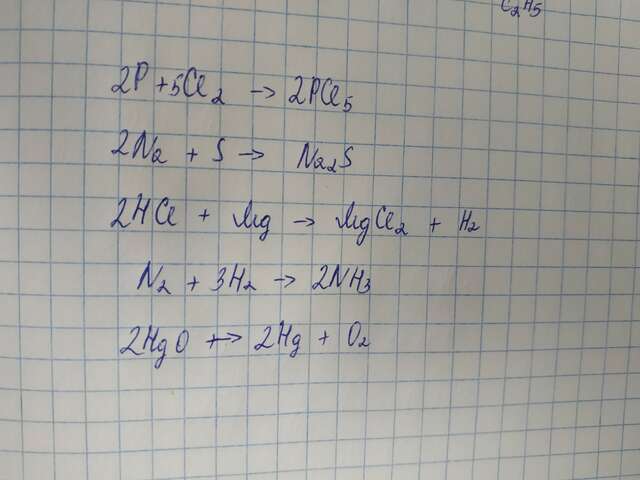 C₂H₅
2P + 5Cl₂ → 2PCl₅
2Na + S → Na₂S
2HCl + Mg → MgCl₂ + H₂
N₂ + 3H₂ → 2NH₃
2HgO +→ 2Hg + O₂